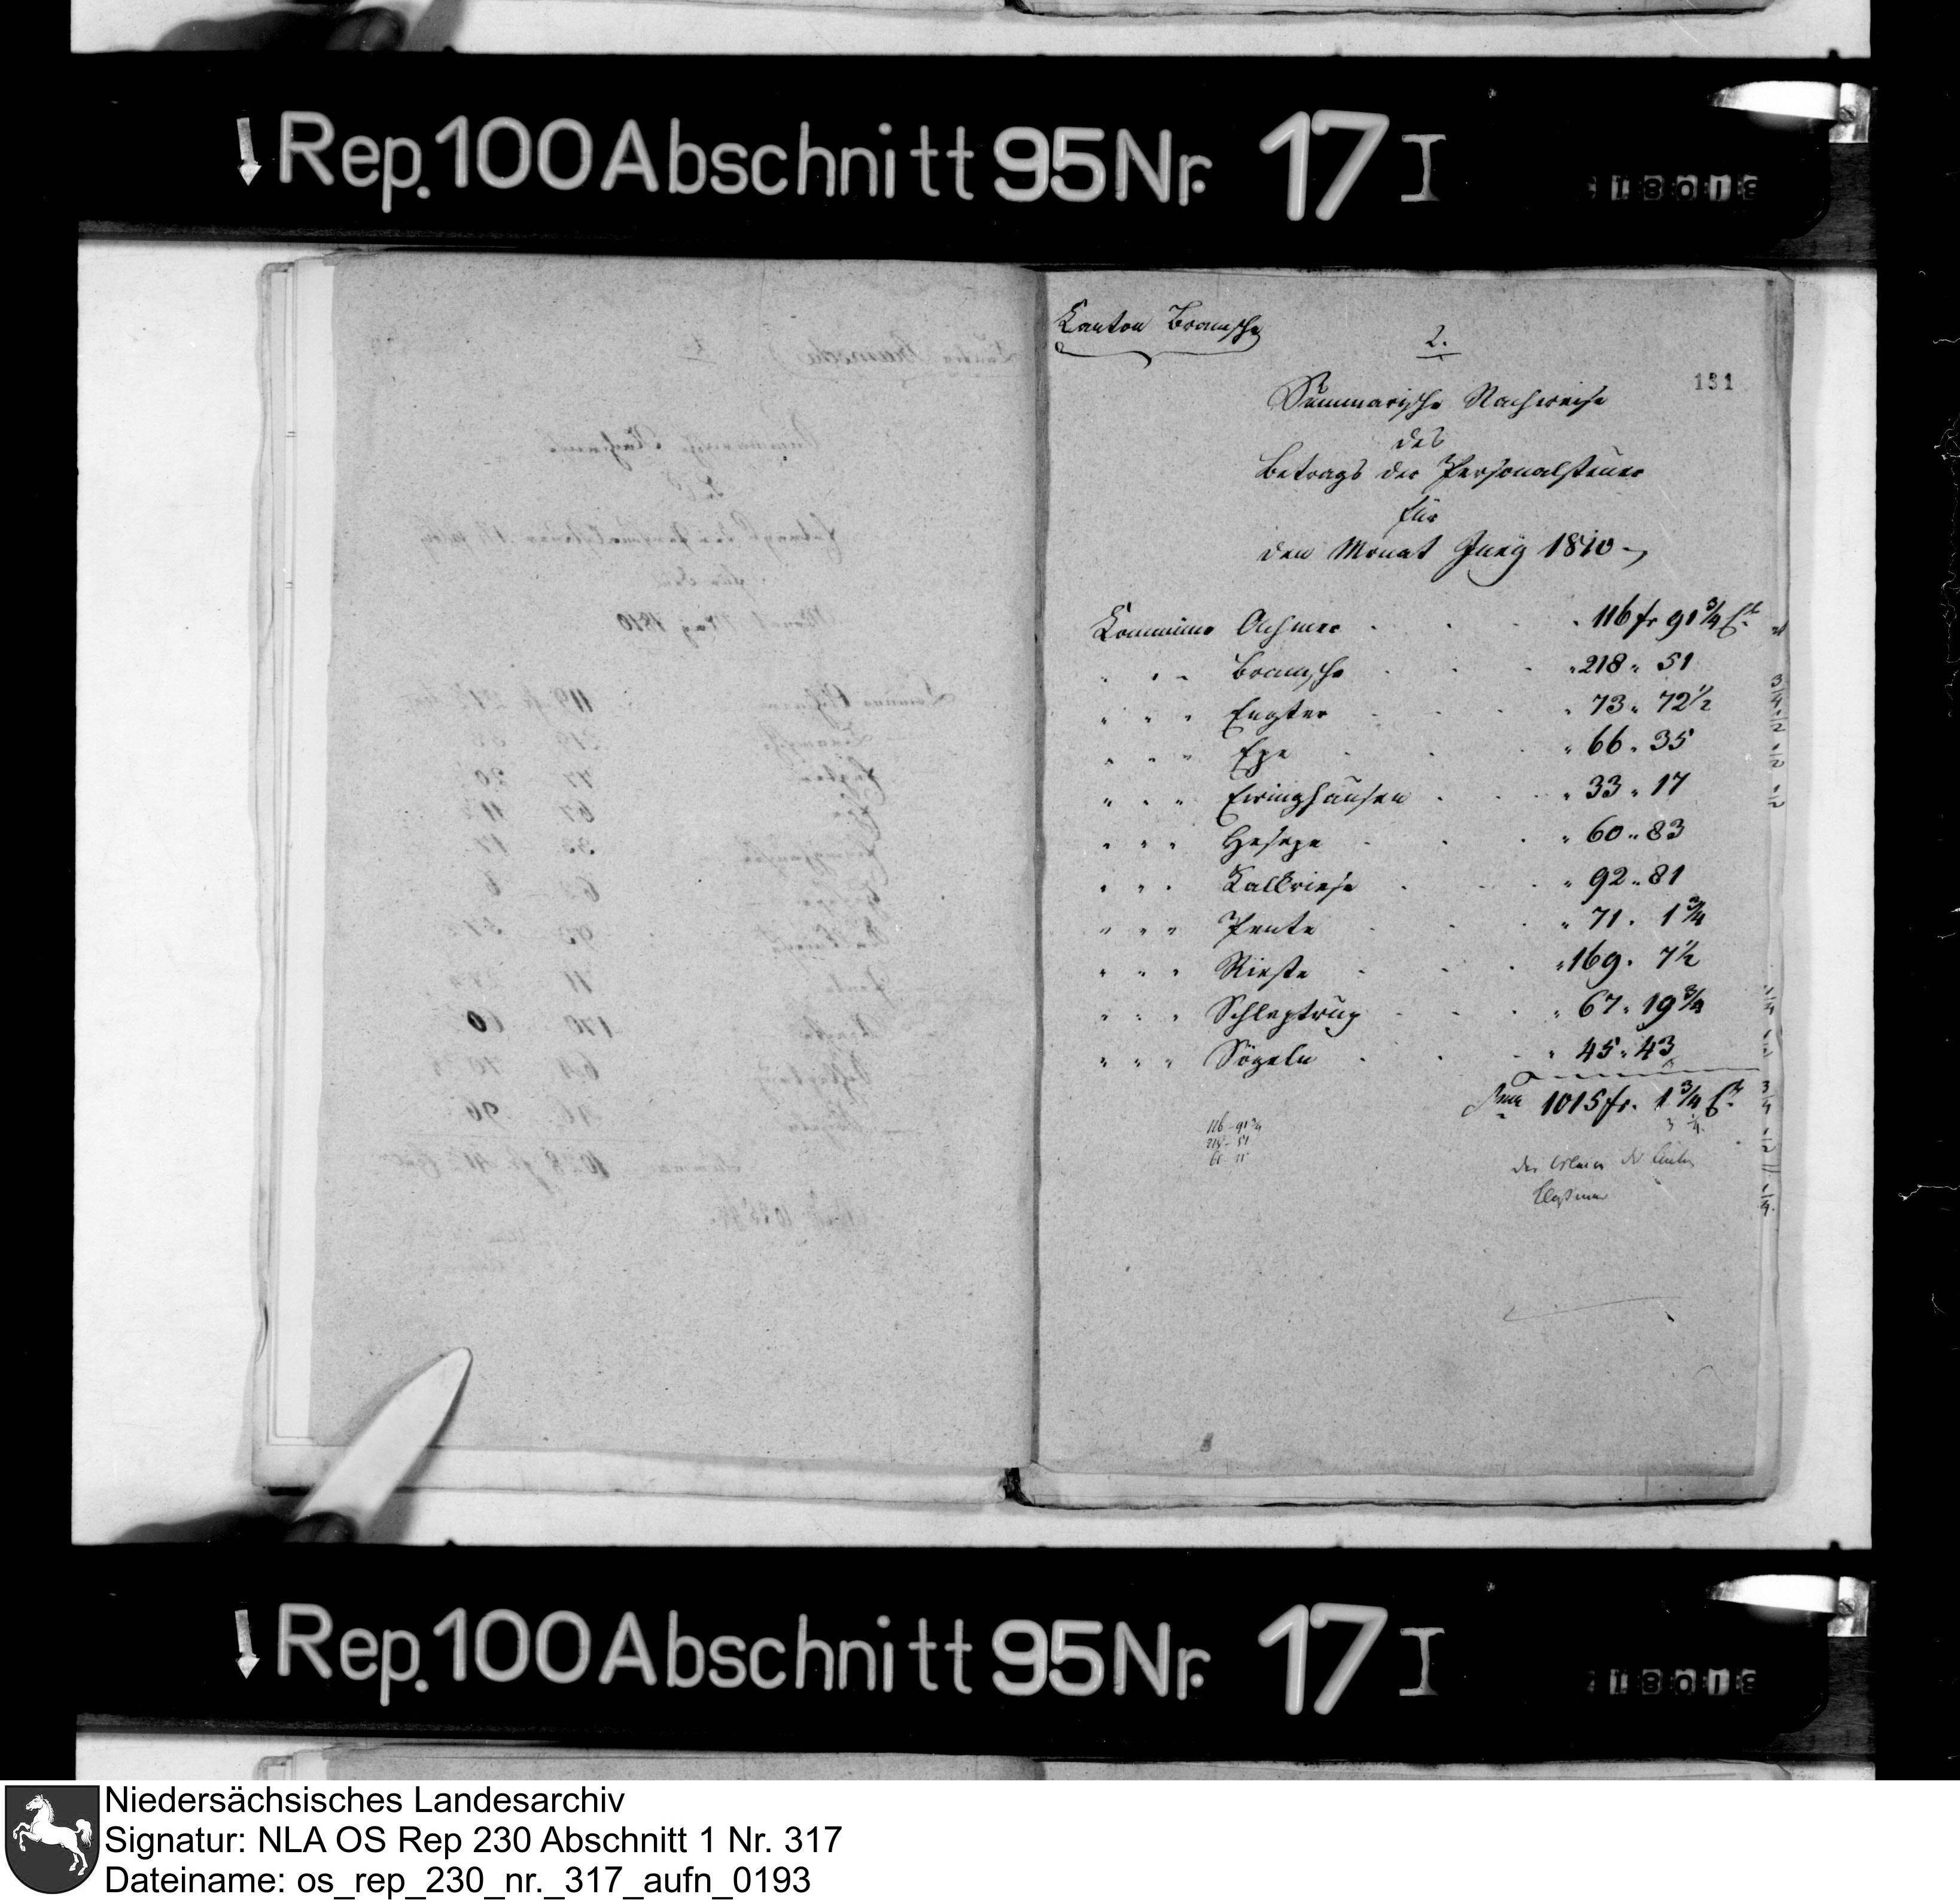 Rep. 100 Abschnitt 95 Nr. 17 I
18013
Kanton Bramsche
2.
131
Summarische Nachweise
des
Betrags der Personalsteuer
für
den Monat Juny 1810
Kommune Achmer . . . . 116 fr 91 3/4 Ct
" " " Bramsche . . . " 218 " 51
" " " Engter . . . " 73 " 72 1/2
" " " Epe . . . " 66 " 35
" " " Evinghausen . . . " 33 " 17
" " " Hesepe . . . " 60 " 83
" " " Kalkriese . . . " 92 " 81
" " " Pente . . . " 71 " 1 3/4
" " " Rieste . . . " 169 " 7 1/2
" " " Schleptrup . . . " 67 " 19 3/4
" " " Sögeln . . . " 45 " 43
Sma 1015 fr. 1 3/4 Ct
116 - 91 3/4
218 - 51
Rep. 100 Abschnitt 95 Nr. 17 I
18013
Niedersächsisches Landesarchiv
Signatur: NLA OS Rep 230 Abschnitt 1 Nr. 317
Dateiname: os_rep_230_nr._317_aufn_0193